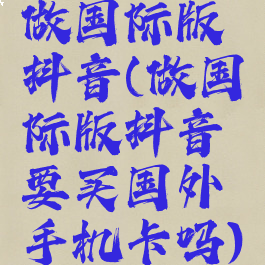 做国际版
抖音(做国
际版抖音
要买国外
手机卡吗)